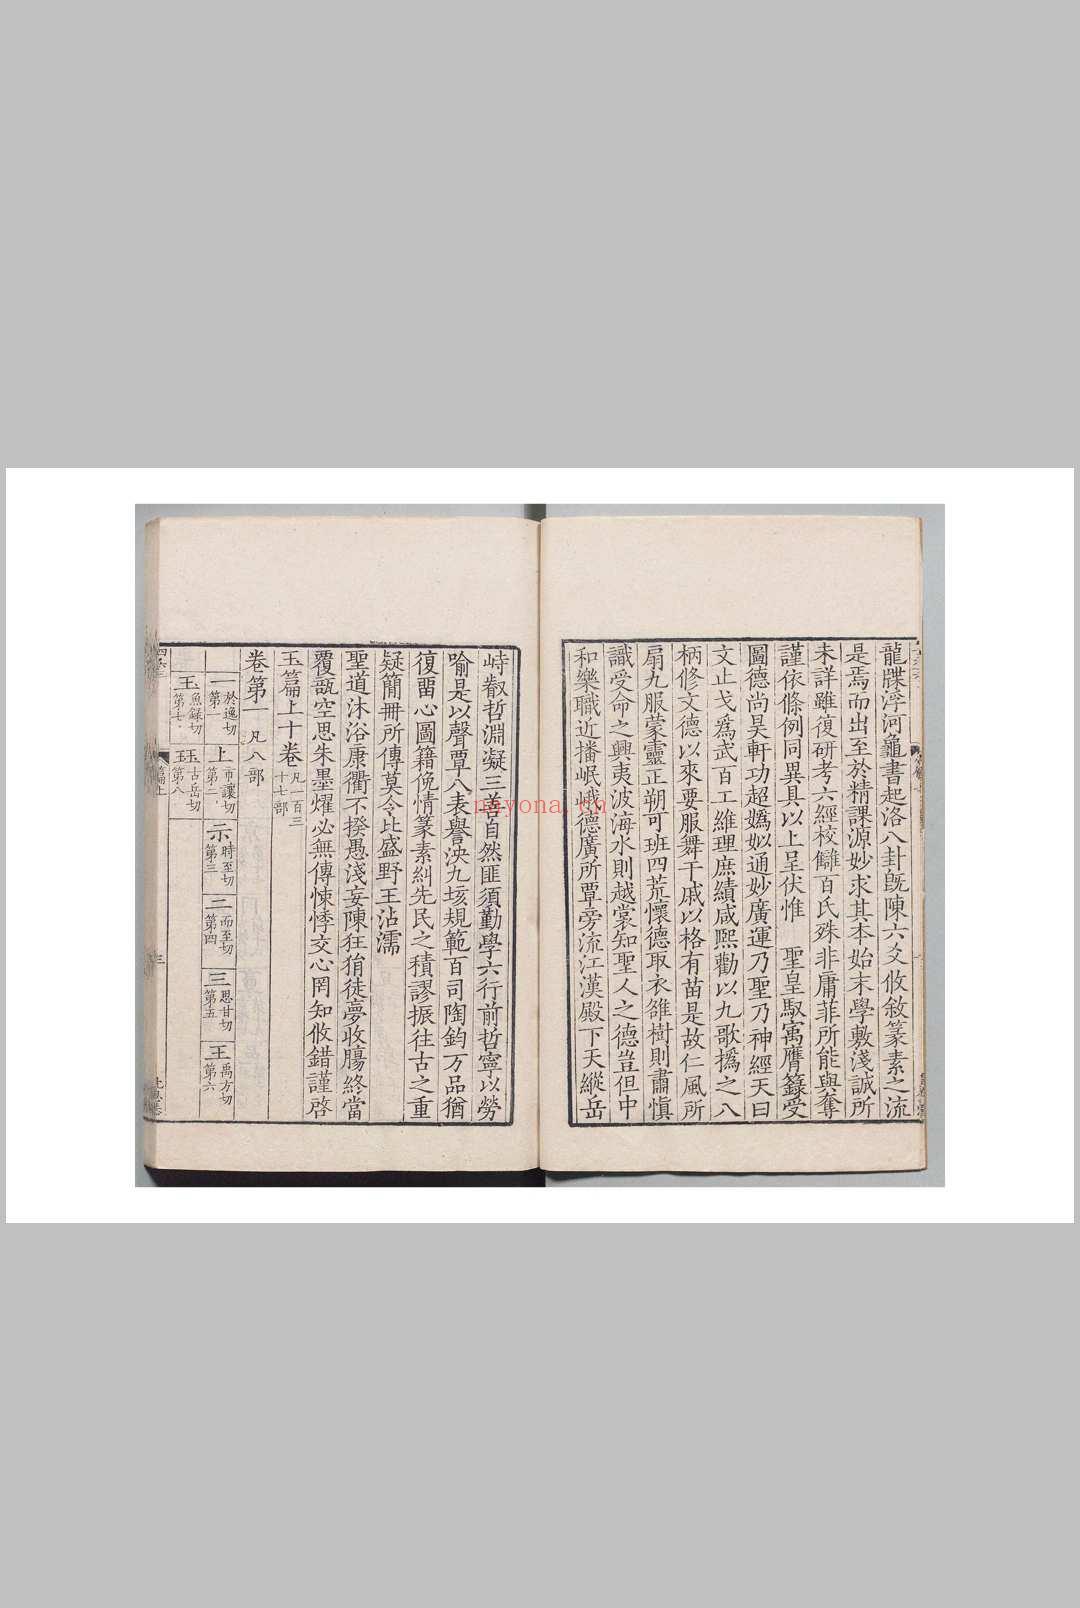 龍牒浮河龜書起洛八卦旣陳六爻攸敘篆素之流
是焉而出至於精課源妙求其本始末學敷淺誠所
未詳雖復研考六經校讎百氏殊非庸菲所能與奪
謹依條例同異具以上呈伏惟 聖皇馭㝢膺籙受
圖德尚昊軒功超嬀姒通妙廣運乃聖乃神經天曰
文止戈爲武百工維理庶績咸熙勸以九歌撝之八
柄修文德以來要服舞干戚以格有苗是故仁風所
扇九服蒙靈正朔可班四荒懷德取衣雒樹則肅愼
識受命之興夷波海水則越裳知聖人之德豈但中
和樂職近播岷峨德廣所覃旁流江漢殿下天縱岳
峙叡哲淵凝三善自然匪須勤學六行前哲寧以勞
喻是以聲覃八表譽泱九垓規範百司陶鈞万品猶
復畱心圖籍俛情篆素糾先民之積謬振往古之重
疑簡冊所傳莫令比盛野王沾濡
聖道沐浴康衢不揆愚淺妄陳狂狷徒夢收腸終當
覆瓿空思朱墨懼必無傳悚悸交心罔知攸錯謹啓
玉篇上十卷 凡一百三十七部
卷第一 凡八部
一 於逸切 第一
上 市讓切 第二
示 時至切 第三
二 而至切 第四
三 思甘切 第五
王 禹方切 第六
玉 魚録切 第七
玨 古岳切 第八
篇上
三
nayona.cn